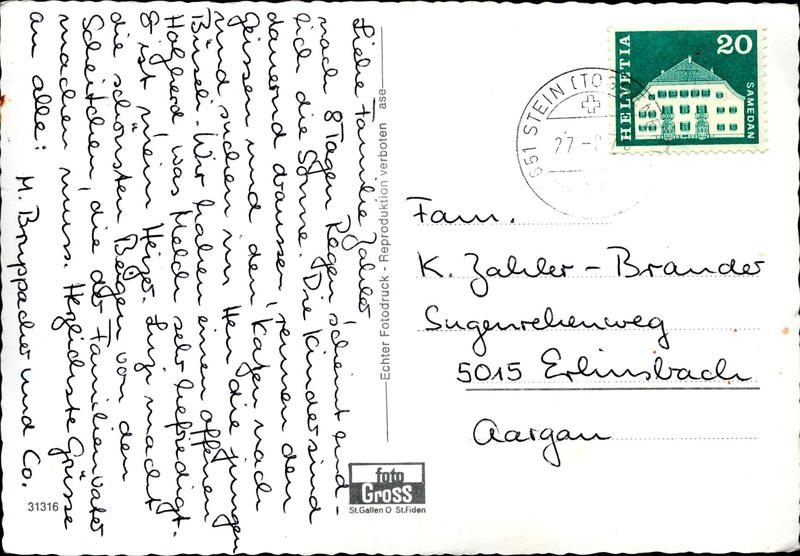 Liebe Familie Zahler,
nach 8 Tagen Regen, scheint end-
lich die Sonne. Die Kinder sind
dauernd draussen, rennen den
Geissen und den Katzen nach
und suchen im Heu die jungen
Büseli. Wir haben einen offenen
Holzherd was Melch sehr befriedigt.
Er ist mein Heizer. Luzi macht
die schönsten Beigen von den
Scheitchen, die der Familienvater
machen muss. Herzlichste Grüsse
an alle:
M. Bruppacher und Co.
31316
Echter Fotodruck - Reproduktion verboten ase
foto
Gross
St.Gallen O St.Fiden
651 STEIN (TOG
27-8
HELVETIA
20
SAMEDAN
Fam.
K. Zahler-Brander
Sugenrebenweg
5015 Erlinsbach
Aargau